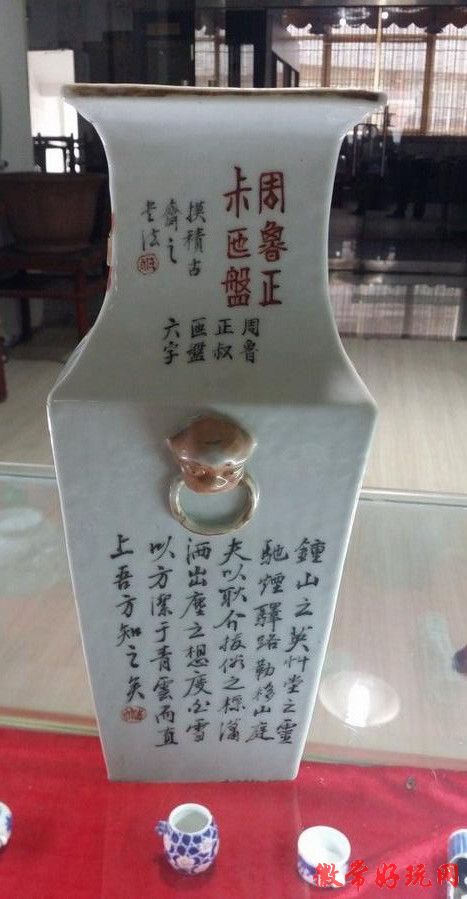 周魯正
尗匜盤
周魯
正叔
匜盤
六字
摸積古
齋之
法
鐘山之英艸堂之靈
馳煙驛路勒移山庭
夫以耿介拔俗之標瀟
洒出塵之想度白雪
以方潔干青雲而直
上吾方知之矣
徽常好玩网